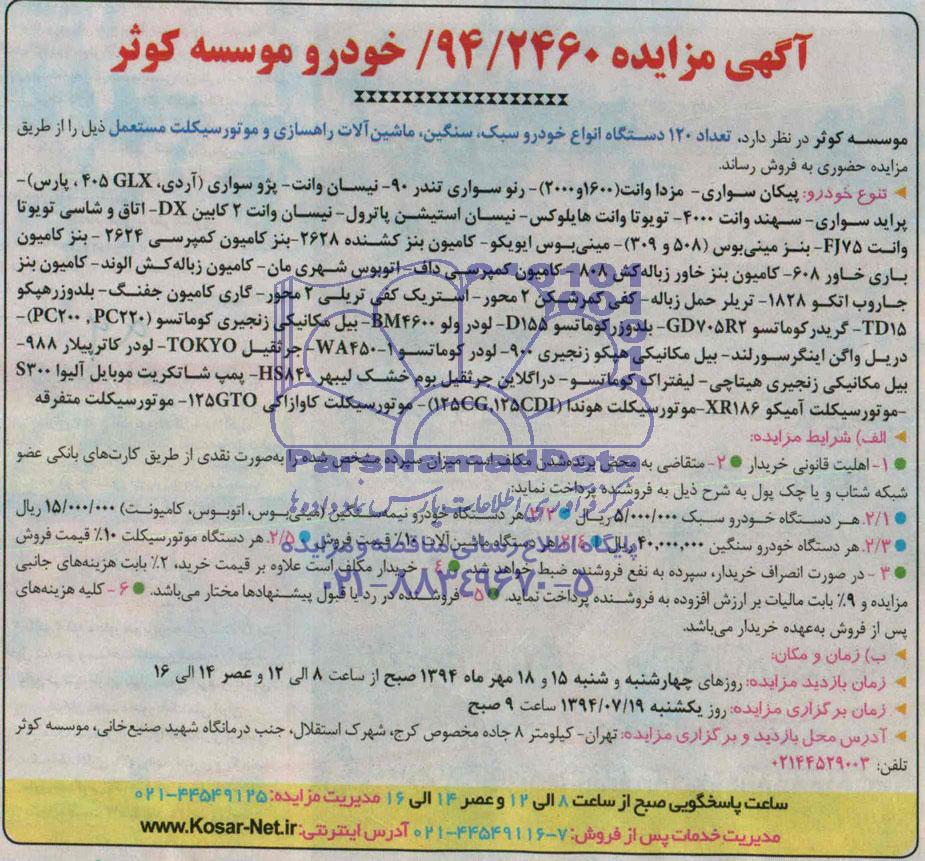 آگهی مزایده ۹۴/۲۴۶۰/ خودرو موسسه کوثر
موسسه کوثر در نظر دارد، تعداد ۱۲۰ دستگاه انواع خودرو سبک، سنگین، ماشین‌آلات راهسازی و موتورسیکلت مستعمل ذیل را از طریق
مزایده حضوری به فروش رساند.
تنوع خودرو: پیکان سواری- مزدا وانت(۱۶۰۰و۲۰۰۰)- رنو سواری تندر ۹۰- نیسان وانت- پژو سواری (آردی، ۴۰۵ GLX ، پارس)-
پراید سواری- سهند وانت ۴۰۰۰- تویوتا وانت هایلوکس- نیسان استیشن پاترول- نیسان وانت ۲ کابین DX- اتاق و شاسی تویوتا
وانت FJ۷۵- بنز مینی‌بوس (۵۰۸ و ۳۰۹)- مینی‌بوس ایویکو- کامیون بنز کشنده ۲۶۲۸-بنز کامیون کمپرسی ۲۶۲۴ - بنز کامیون
باری خاور ۶۰۸- کامیون بنز خاور زباله‌کش ۸۰۸- کامیون کمپرسی داف- اتوبوس شهری مان- کامیون زباله‌کش الوند- کامیون بنز
جاروب اتکو ۱۸۲۸- تریلر حمل زباله- کفی کمرشکن ۲ محور- استریک کفی تریلی ۲ محور- گاری کامیون جفنگ- بلدوزرهپکو
TD۱۵- گریدرکوماتسو GD۷۰۵R۲- بلدوزرکوماتسو D۱۵۵- لودر ولو BM۴۶۰۰- بیل مکانیکی زنجیری کوماتسو (PC۲۰۰ ,PC۲۲۰)-
دریل واگن اینگرسورلند- بیل مکانیکی هپکو زنجیری ۹۰۰- لودر کوماتسو WA۴۵۰-۱- جرثقیل TOKYO- لودر کاترپیلار ۹۸۸-
بیل مکانیکی زنجیری هیتاچی- لیفتراک کوماتسو- دراگلاین جرثقیل بوم خشک لیبهر HS۸۴۰- پمپ شاتکریت موبایل آلیوا S۳۰۰
-موتورسیکلت آمیکو XR۱۸۶-موتورسیکلت هوندا (۱۲۵CG,۱۲۵CDI)- موتورسیکلت کاوازاکی ۱۲۵GTO- موتورسیکلت متفرقه
الف) شرایط مزایده:
۱- اهلیت قانونی خریدار ۲- متقاضی به محض برنده‌شدن مکلف است میزان سپرده مشخص شده را به‌صورت نقدی از طریق کارت‌های بانکی عضو
شبکه شتاب و یا چک پول به شرح ذیل به فروشنده پرداخت نماید:
۲/۱. هر دستگاه خودرو سبک ۵/۰۰۰/۰۰۰ ریال ۲/۲. هر دستگاه خودرو نیمه‌سنگین (مینی‌بوس، اتوبوس، کامیونت) ۱۵/۰۰۰/۰۰۰ ریال
۲/۳. هر دستگاه خودرو سنگین ۴۰,۰۰۰,۰۰۰ ریال ۲/۴. هر دستگاه ماشین‌آلات ۱۰٪ قیمت فروش ۲/۵. هر دستگاه موتورسیکلت ۱۰٪ قیمت فروش
۳ - در صورت انصراف خریدار، سپرده به نفع فروشنده ضبط خواهد شد. ۴ - خریدار مکلف است علاوه بر قیمت خرید، ۲٪ بابت هزینه‌های جانبی
مزایده و ۹٪ بابت مالیات بر ارزش افزوده به فروشنده پرداخت نماید. ۵ - فروشنده در رد یا قبول پیشنهادها مختار می‌باشد. ۶- کلیه هزینه‌های
پس از فروش به‌عهده خریدار می‌باشد.
ب) زمان و مکان:
زمان بازدید مزایده: روزهای چهارشنبه و شنبه ۱۵ و ۱۸ مهر ماه ۱۳۹۴ صبح از ساعت ۸ الی ۱۲ و عصر ۱۴ الی ۱۶
زمان برگزاری مزایده: روز یکشنبه ۱۳۹۴/۰۷/۱۹ ساعت ۹ صبح
آدرس محل بازدید و برگزاری مزایده: تهران- کیلومتر ۸ جاده مخصوص کرج، شهرک استقلال، جنب درمانگاه شهید صنیع‌خانی، موسسه کوثر
تلفن: ۰۲۱۴۴۵۲۹۰۰۳
ساعت پاسخگویی صبح از ساعت ۸ الی ۱۲ و عصر ۱۴ الی ۱۶ مدیریت مزایده: ۰۲۱-۴۴۵۴۹۱۲۵
مدیریت خدمات پس از فروش: ۰۲۱-۴۴۵۴۹۱۱۶-۷ آدرس اینترنتی: www.Kosar-Net.ir
ParsNamadData
پایگاه اطلاع رسانی مناقصه و مزایده
۰۲۱-۸۸۳۴۹۶۷۰-۵